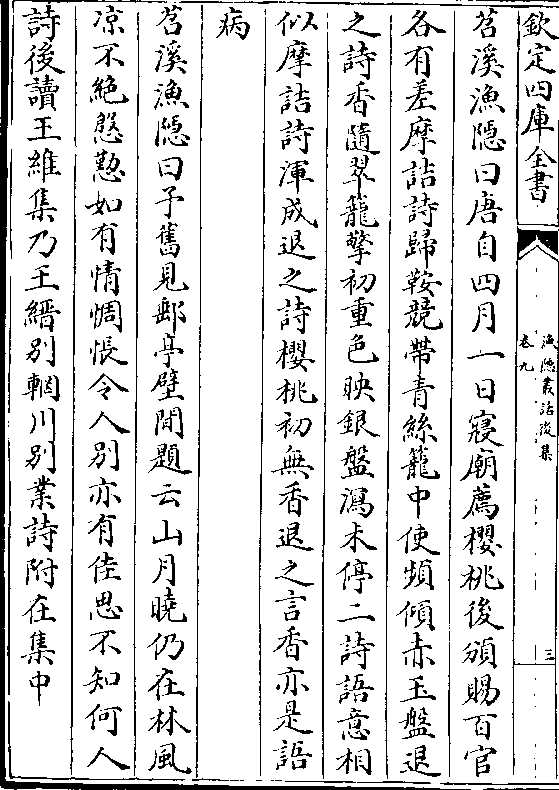 欽定四庫全書
漁隠叢話後集
卷九
三
苕溪漁隠曰唐自四月一日寢廟薦櫻桃後頒賜百官
各有差摩詰詩歸鞍競帶青絲籠中使頻傾赤玉盤退
之詩香隨翠籠擎初重色映銀盤瀉未停二詩語意相
似摩詰詩渾成退之詩櫻桃初無香退之言香亦是語
病
苕溪漁隠曰予舊見郵亭壁間題云山月曉仍在林風
凉不絶慇懃如有情惆悵令人别亦有佳思不知何人
詩後讀王維集乃王縉别輞川别業詩附在集中